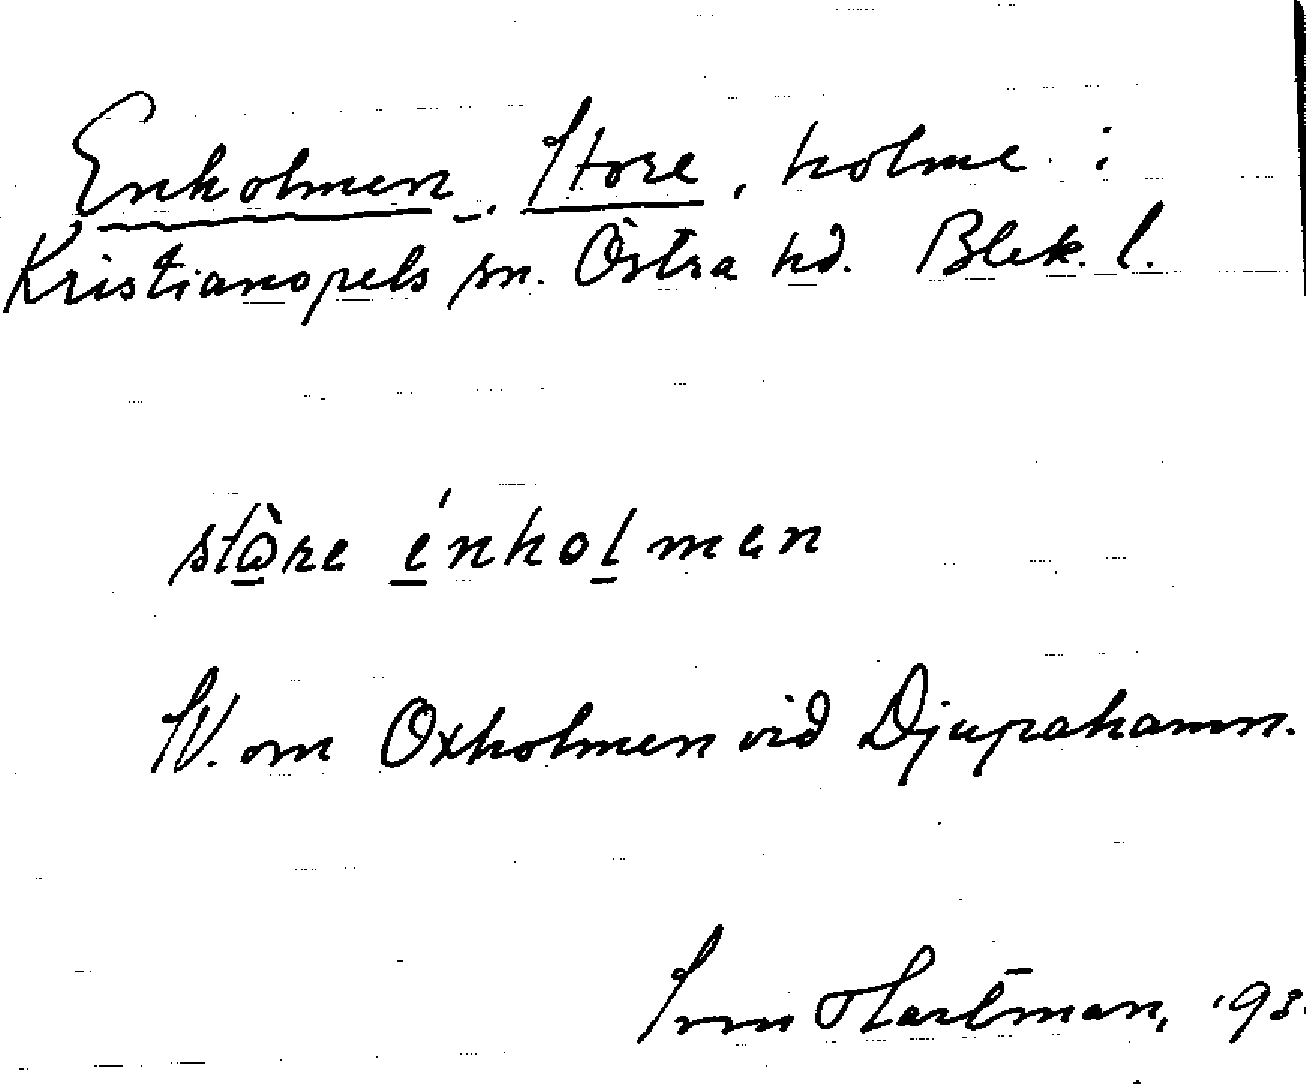 Enholmen, Store, holme i
Kristianopels sn. Östra hd. Blek. l.
stòre énholmen
SV. om Oxholmen vid Djupahamn.
Hartman,